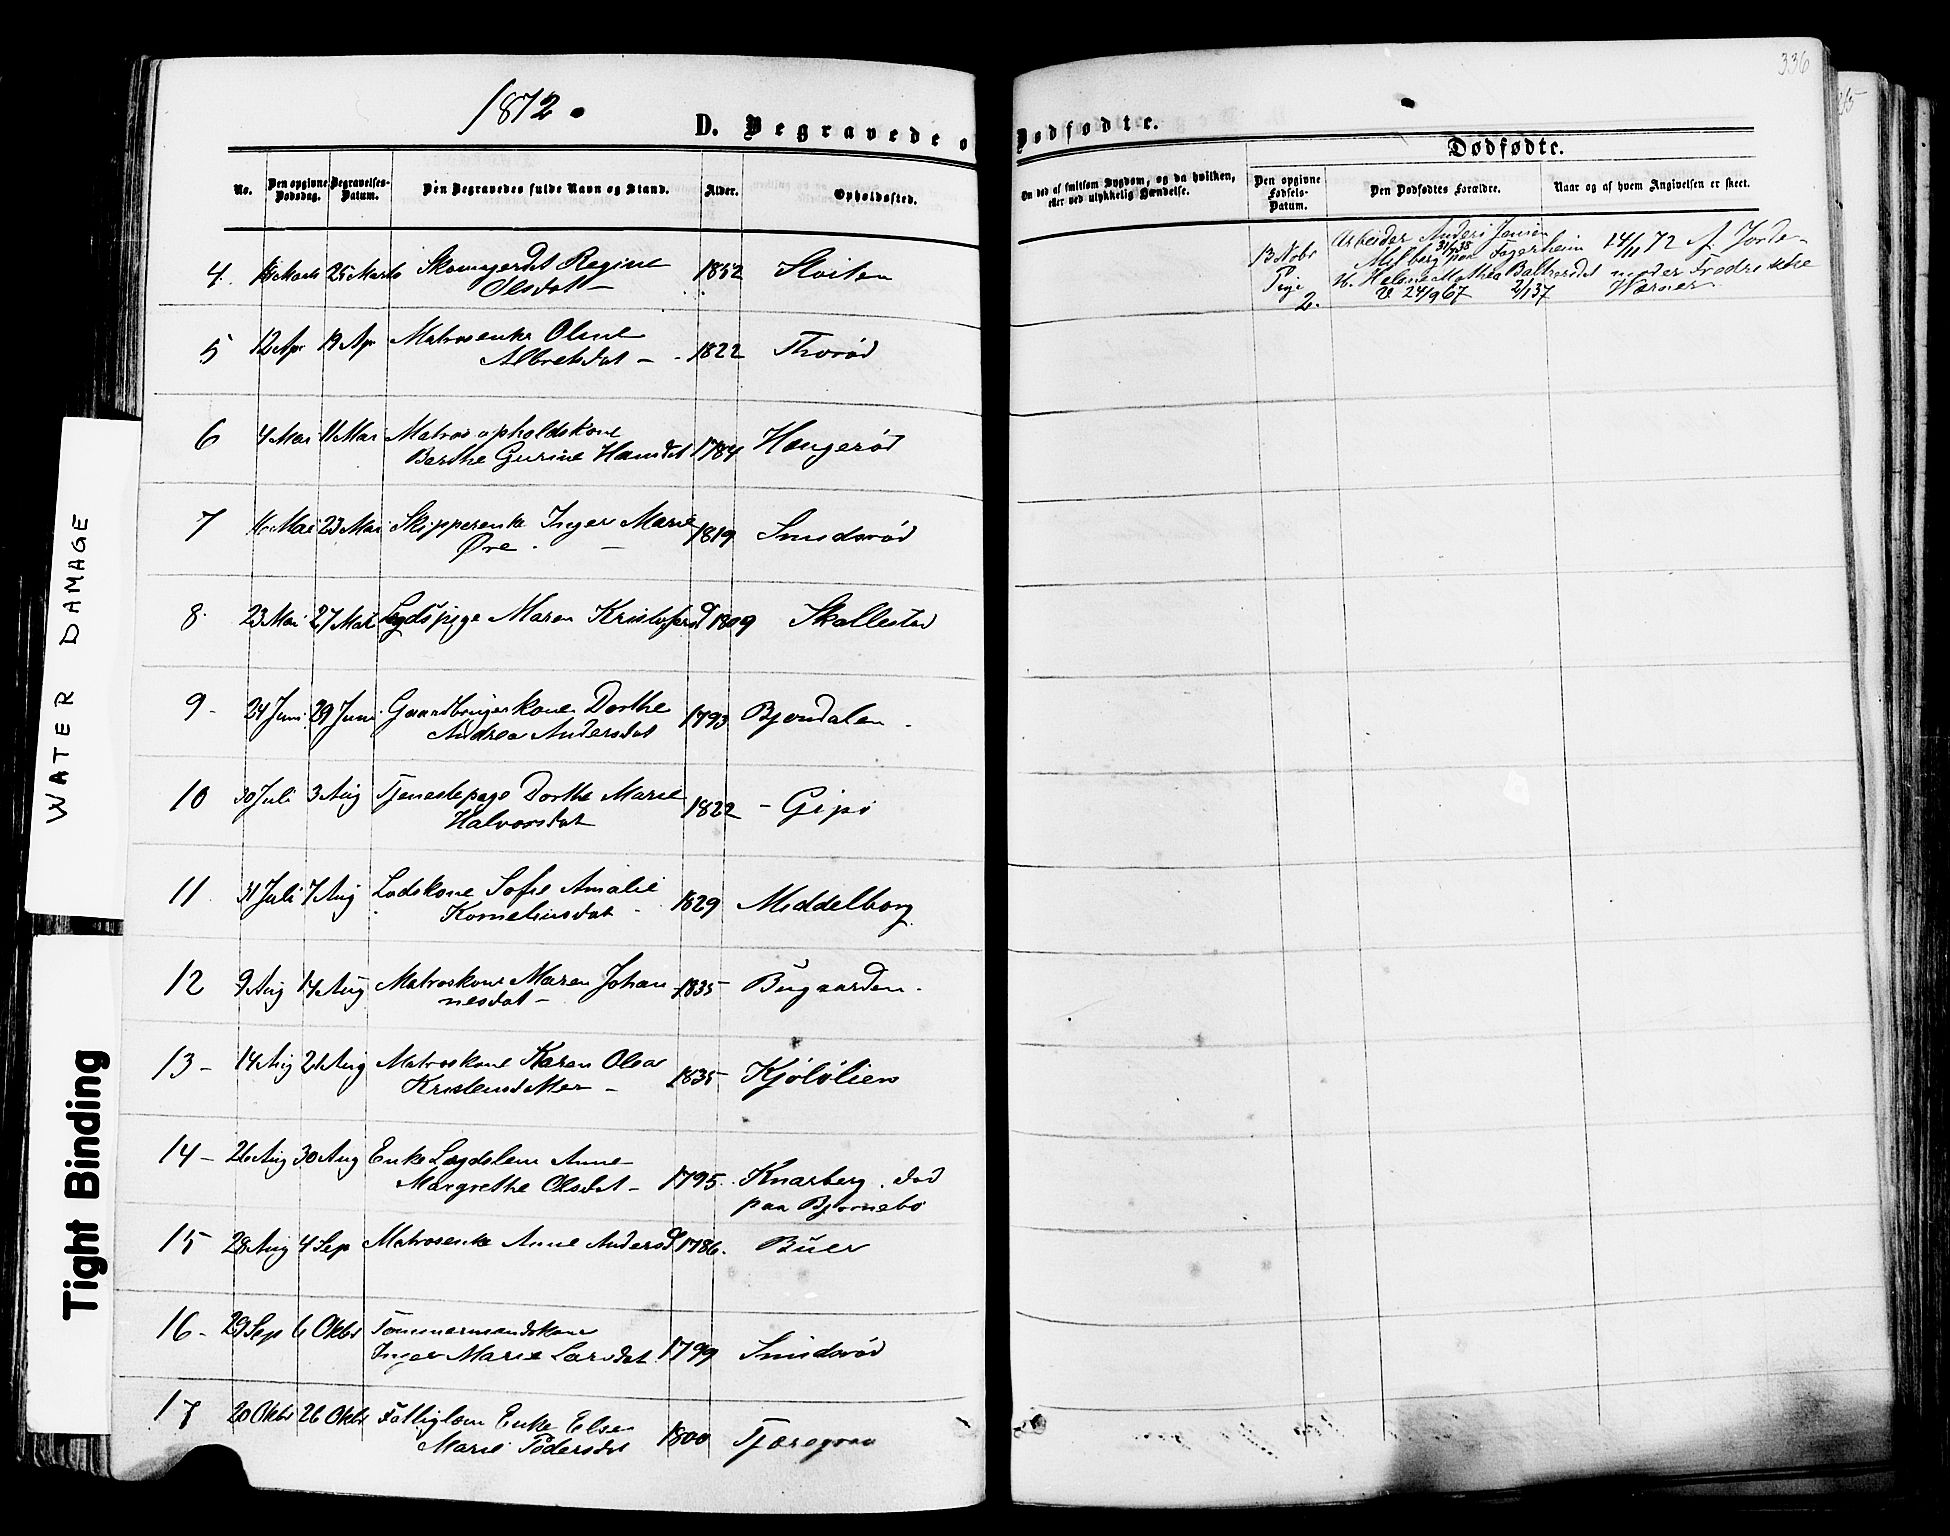 336
1872.
D. Begravede o
Dødfødte.
Dødfødte.
No.
Den opgivne Dødsdag.
Begravelses-Datum.
Den Begravedes fulde Navn og Stand.
Alder.
Opholdssted.
Om død af smitsom Sygdom, og da hvilken, eller ved ulykkelig Hændelse.
Den opgivne Fødsels-Datum.
Den Dødfødtes Forældre.
Naar og af hvem Angivelsen er skeet.
4. Marts 25 Marts Regine 1852
Olsdat –
13 Novbr Arbeider Anders Jensen
Pige paa Fagerheim 14/11 72 af Jorde-
2. H. Helene Mathea moder Fredrikke
V 24/9 67 2/1 37 Werner
5 12 Apr 19 Ap Matrosenke Oline
Albretsdat – 1822 Thorød
6 4 Mai 11 Mai Matros opholdskone
Berthe Gurine Hansdat 1784 Haugerød
7 16 Mai 23 Mai Skipperenke Inger Marie
Øre. – 1819 Smidsrød
8. 23 Mai 27 Mai Lægdspige Maren Kristofersd 1809 Skallestad
9 – 24 Juni 29 Juni Gaardbrugerkone Dorthe
Andrea Andersdat 1793 Bjerndalen.
10 30 Juli 3 Aug Tjenestepige Dorthe Marie
Halvorsdat 1822 – Gipø
11 31 Juli 7 Aug Lodskone Sofie Amalie
Korneliusdat 1829 Middelborg.
12 9 Aug 14 Aug Matroskone Maren Johan
nesdat – 1835 Bugaarden.
13 – 14 Aug 21 Aug Matroskone Karen Olea
Kristensdatter – 1835 Kjøløliens
14 – 26 Aug 30 Aug Enke Lægdslem Anne
Margrethe Olsdat – 1795. Knarberg. død
paa Bjørnebo
15 28 Aug 4 Sep Matrosenke Anne Andersd 1786. Buer
16 – 29 Sep 6 Oktbr Tømmermandskone
Inger Marie Larsdat 1799 Smidsrød
17 20 Oktbr 26 Oktbr Fattiglem Enke Else
Marie Pedersdat 1800 Tjæregran
WATER DAMAGE
Tight Binding